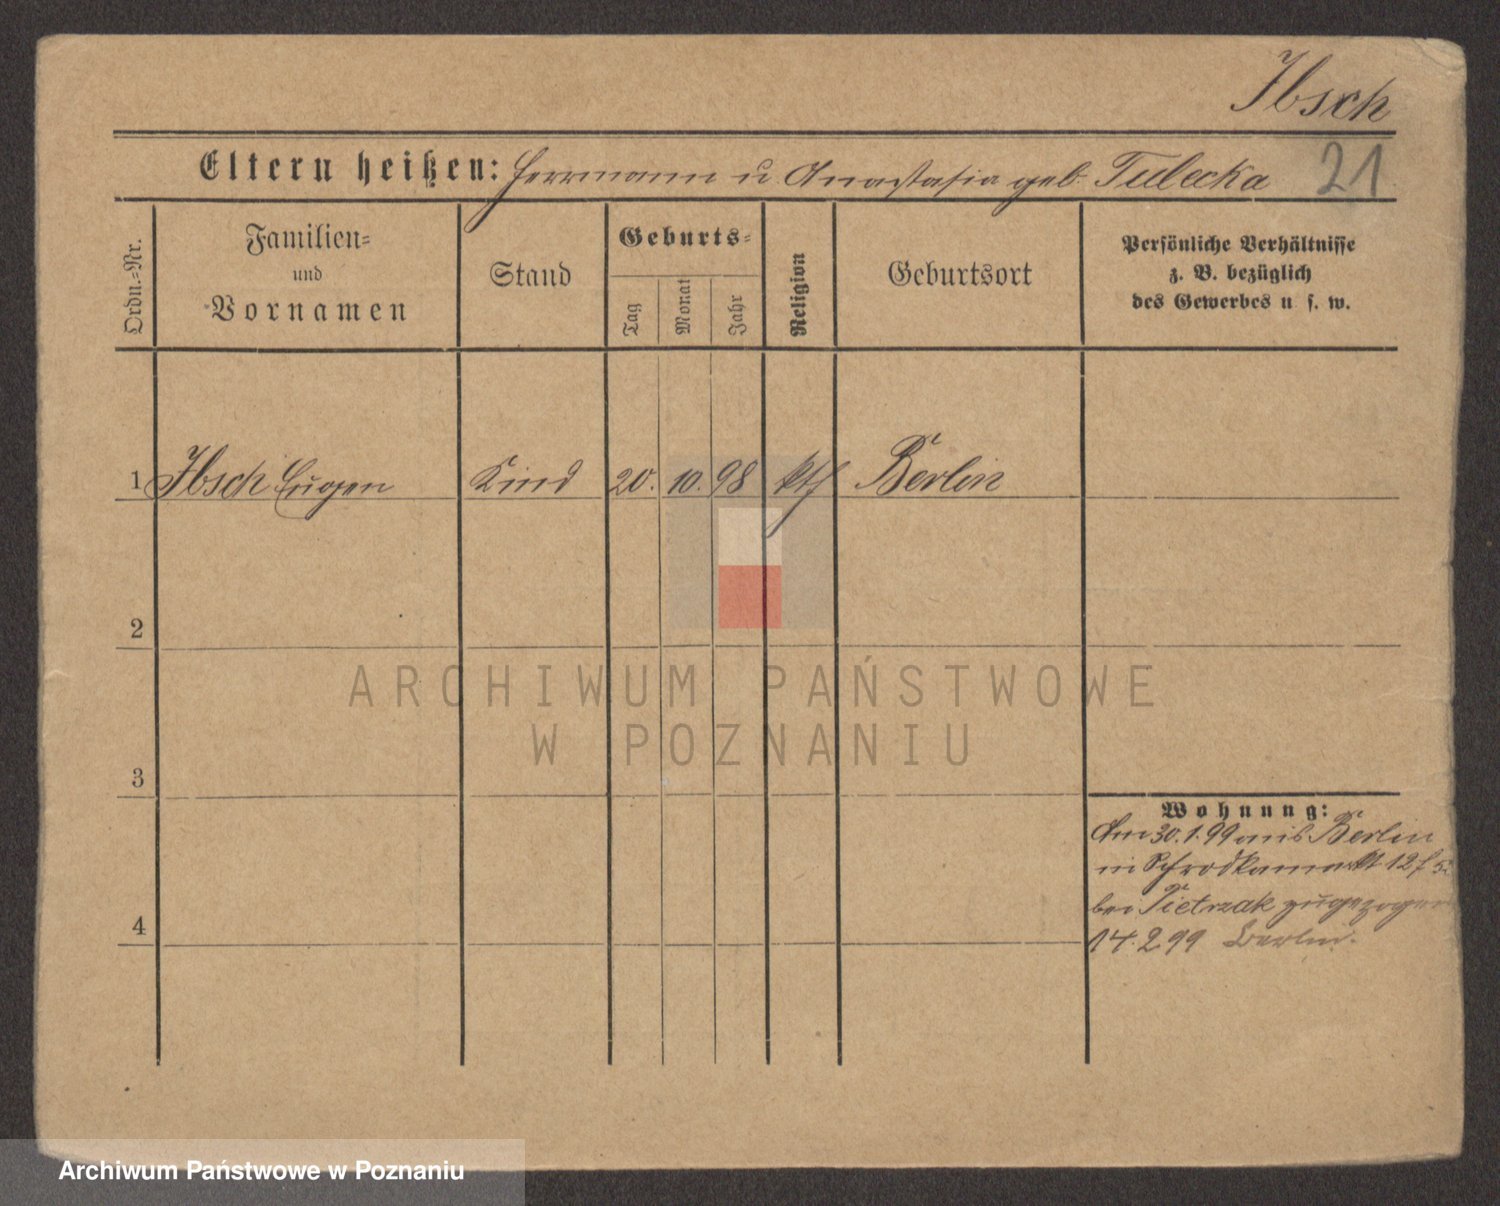 Ibsch
Eltern heißen: Herrmann u Anastasia geb. Tulecka 21
Ordn.-Nr.
Familien-
und
Vornamen
Stand
Geburts-
Tag
Monat
Jahr
Religion
Geburtsort
Persönliche Verhältnisse
z. B. bezüglich
des Gewerbes u. s. w.
1 Ibsch Eugen Kind 20. 10. 98 kth Berlin
2
3
4
Wohnung:
Am 30.1.99 aus Berlin
in Schrodkamarkt 12
bei Pietrzak zugezogen
14.2 99 Berlin.
ARCHIWUM PAŃSTWOWE
W POZNANIU
Archiwum Państwowe w Poznaniu